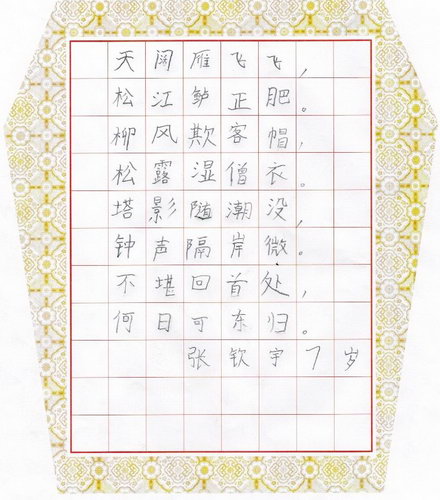 天阔雁飞飞，
松江鲈正肥。
柳风欺客帽，
松露湿僧衣。
塔影随潮没，
钟声隔岸微。
不堪回首处，
何日可东归。
张钦宇7岁